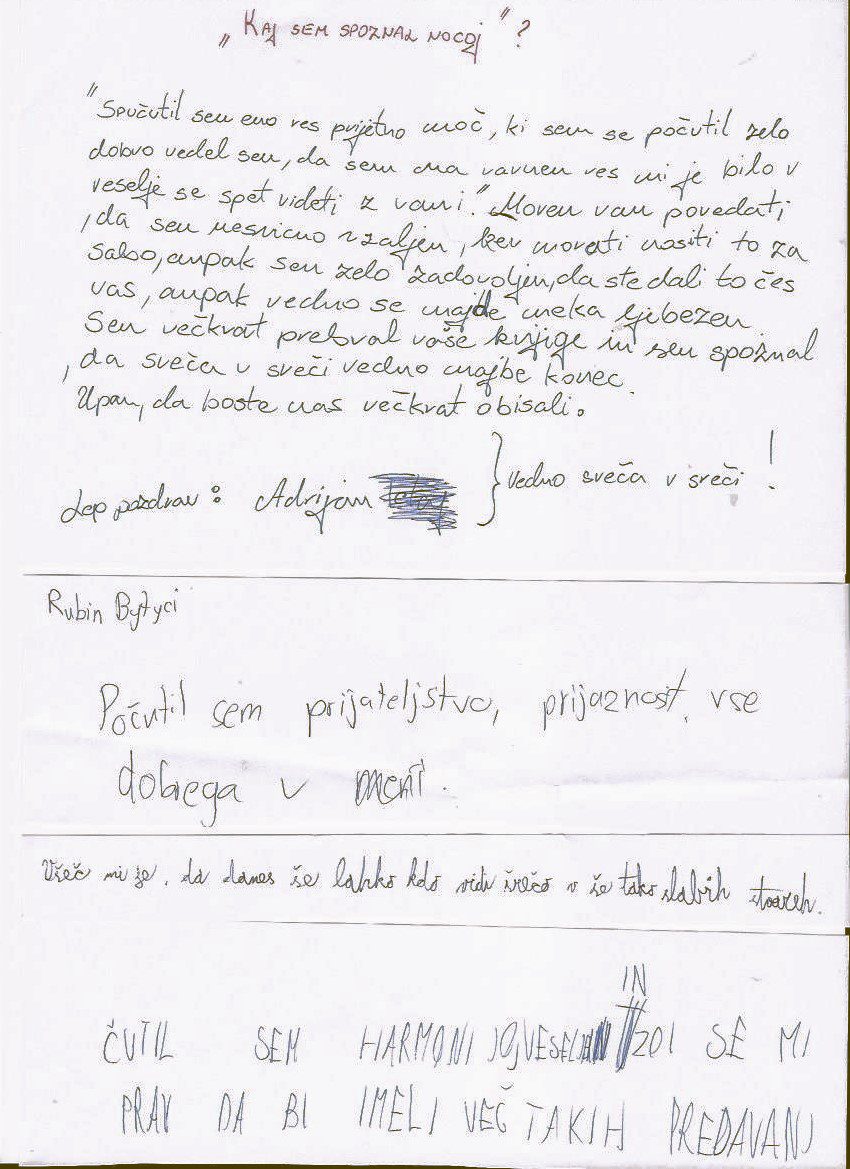 „Kaj sem spoznal nocoj"?
"Spučutil sem eno res prijetno moč, ki sem se počutil zelo
dobro vedel sem, da sem na varnem res mi je bilo v
veselje se spet videti z vami." Morem vam povedati
, da sem resnicno rzaljen, ker morati nositi to za
sabo, ampak sem zelo zadovoljen, da ste dali to čes
vas, ampak vedno se majde neka ljubezen.
Sem večkrat prebral vaše knjige in sem spoznal
, da sveča v sreči vedno najbe konec.
Upam, da boste nas večkrat obisali.
Lep pozdrav: Adrijan } Vedno sveča v sreči !
Rubin Bytyci
Počutil sem prijateljstvo, prijaznost, vse
dobrega v meni.
Všeč mi je, da danes še lahko kdo vidi srečo v še tako slabih stvareh.
IN
ČUTIL SEM HARMONIJO, VESELJE ZDI SE MI
PRAV DA BI IMELI VEČ TAKIH PREDAVANJ